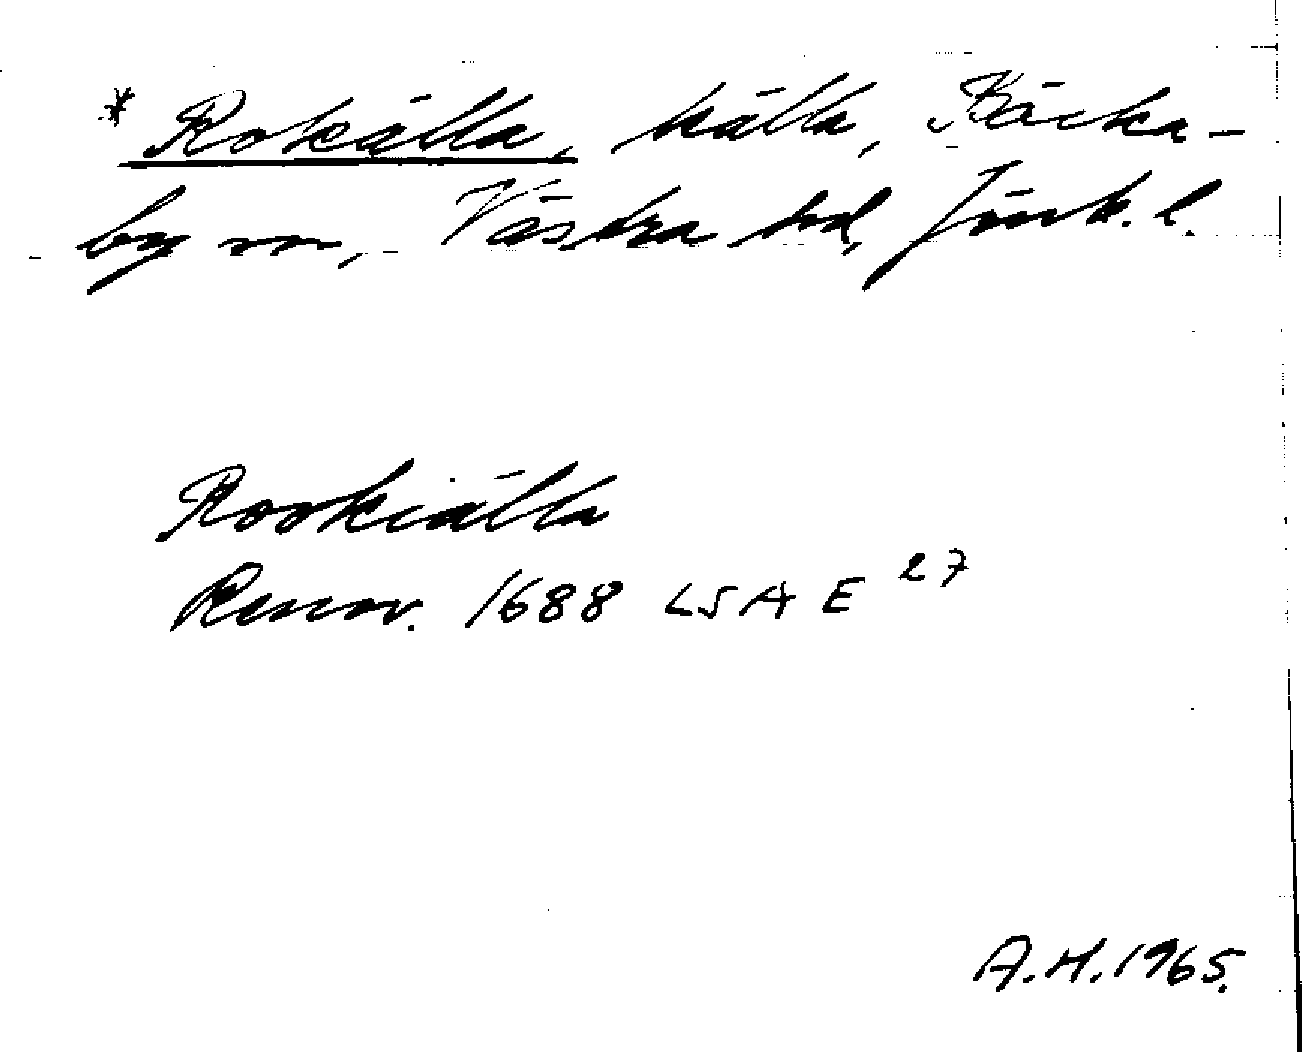 * Rokälla, källa, Bäcka-
by sn, Västra hd, Jönk. l.
Rookiälla
Renov. 1688 LSA E 27
A.H. 1965.